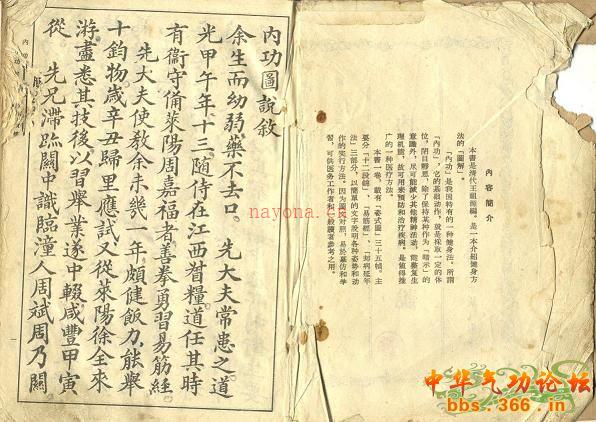 內容簡介
本書是清代王祖源編。是一本介紹健身方
法的「圖解」。
「內功」是我国特有的一种健身法。所謂
「內功」，它的基础动作，就是採取一定的体
位，閉目靜思，除了保持某种作为「暗示」的
意識外，尽可能減少其他精神活动，能整复生
理机能，故可用来預防和治疗疾病。是值得推
广的一种医疗方法。
本書一卷，載有「姿式圖」三十五幀。主
要分「十二段錦」、「易筋經」、「却病延年
法」三部分，以簡单的文字說明各种姿勢和动
作的实行方法。因为圖文对照，易於摹仿和学
習，可供医务工作者和一般讀者参考之用。
內功圖說敘
余生而幼弱藥不去口　先大夫常患之道
光甲午年十三隨侍在江西督糧道任其時
有衞守備萊陽周嘉福者善拳勇習易筋經
先大夫使教余未幾一年頗健飯力能舉
十鈞物歲辛丑歸里應試又從萊陽徐全來
游盡悉其技後以習舉業遂中輟咸豐甲寅
從　先兄滯跡關中識臨潼人周斌周乃關
nayona.cn
中华气功论坛
bbs.366.in